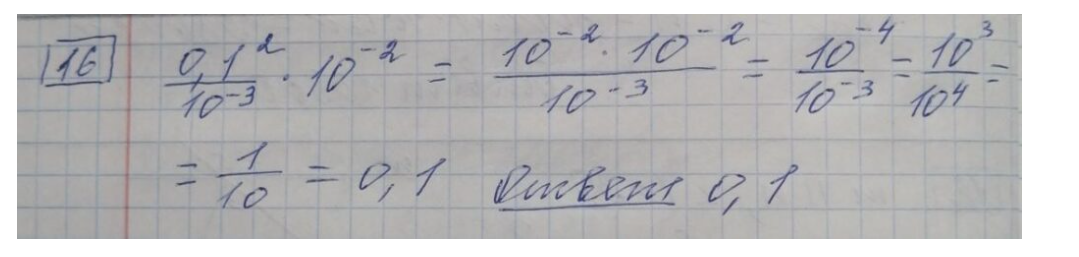 16 0,1²/10⁻³ · 10⁻² = 10⁻² · 10⁻²/10⁻³ = 10⁻⁴/10⁻³ = 10³/10⁴ =
= 1/10 = 0,1 Ответ 0,1